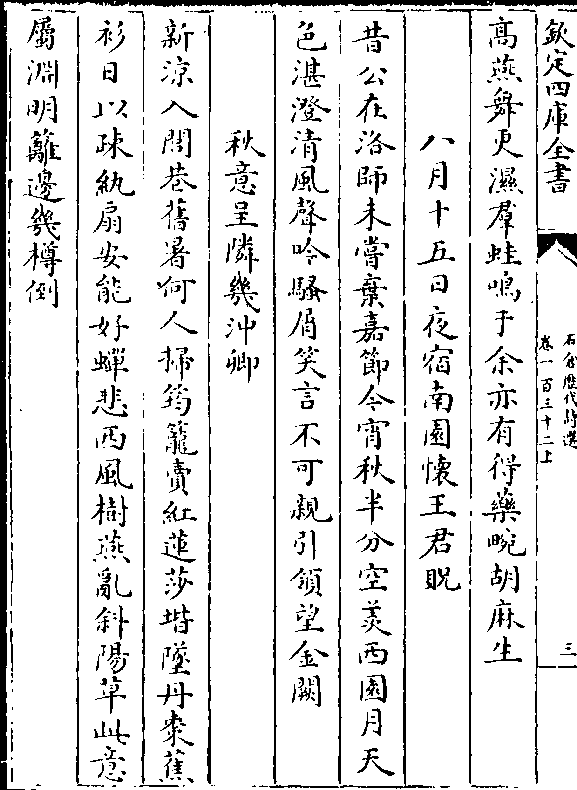 欽定四庫全書
石倉歷代詩選
卷一百三十二上
三
高燕舞更濕羣蛙鳴于余亦有得藥畹胡麻生
八月十五日夜宿南園懷王君貺
昔公在洛師未嘗棄嘉節今宵秋半分空羨西園月天
色湛澄清風聲吟騷屑笑言不可親引領望金闕
秋意呈隣幾沖卿
新涼入閭巷舊暑何人掃筠籠賣紅蓮莎堦墜丹棗蕉
衫日以疎紈扇安能好蟬悲西風樹燕亂斜陽草此意
屬淵明籬邊幾樽倒